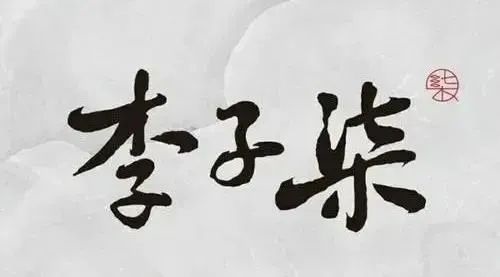 李子柒